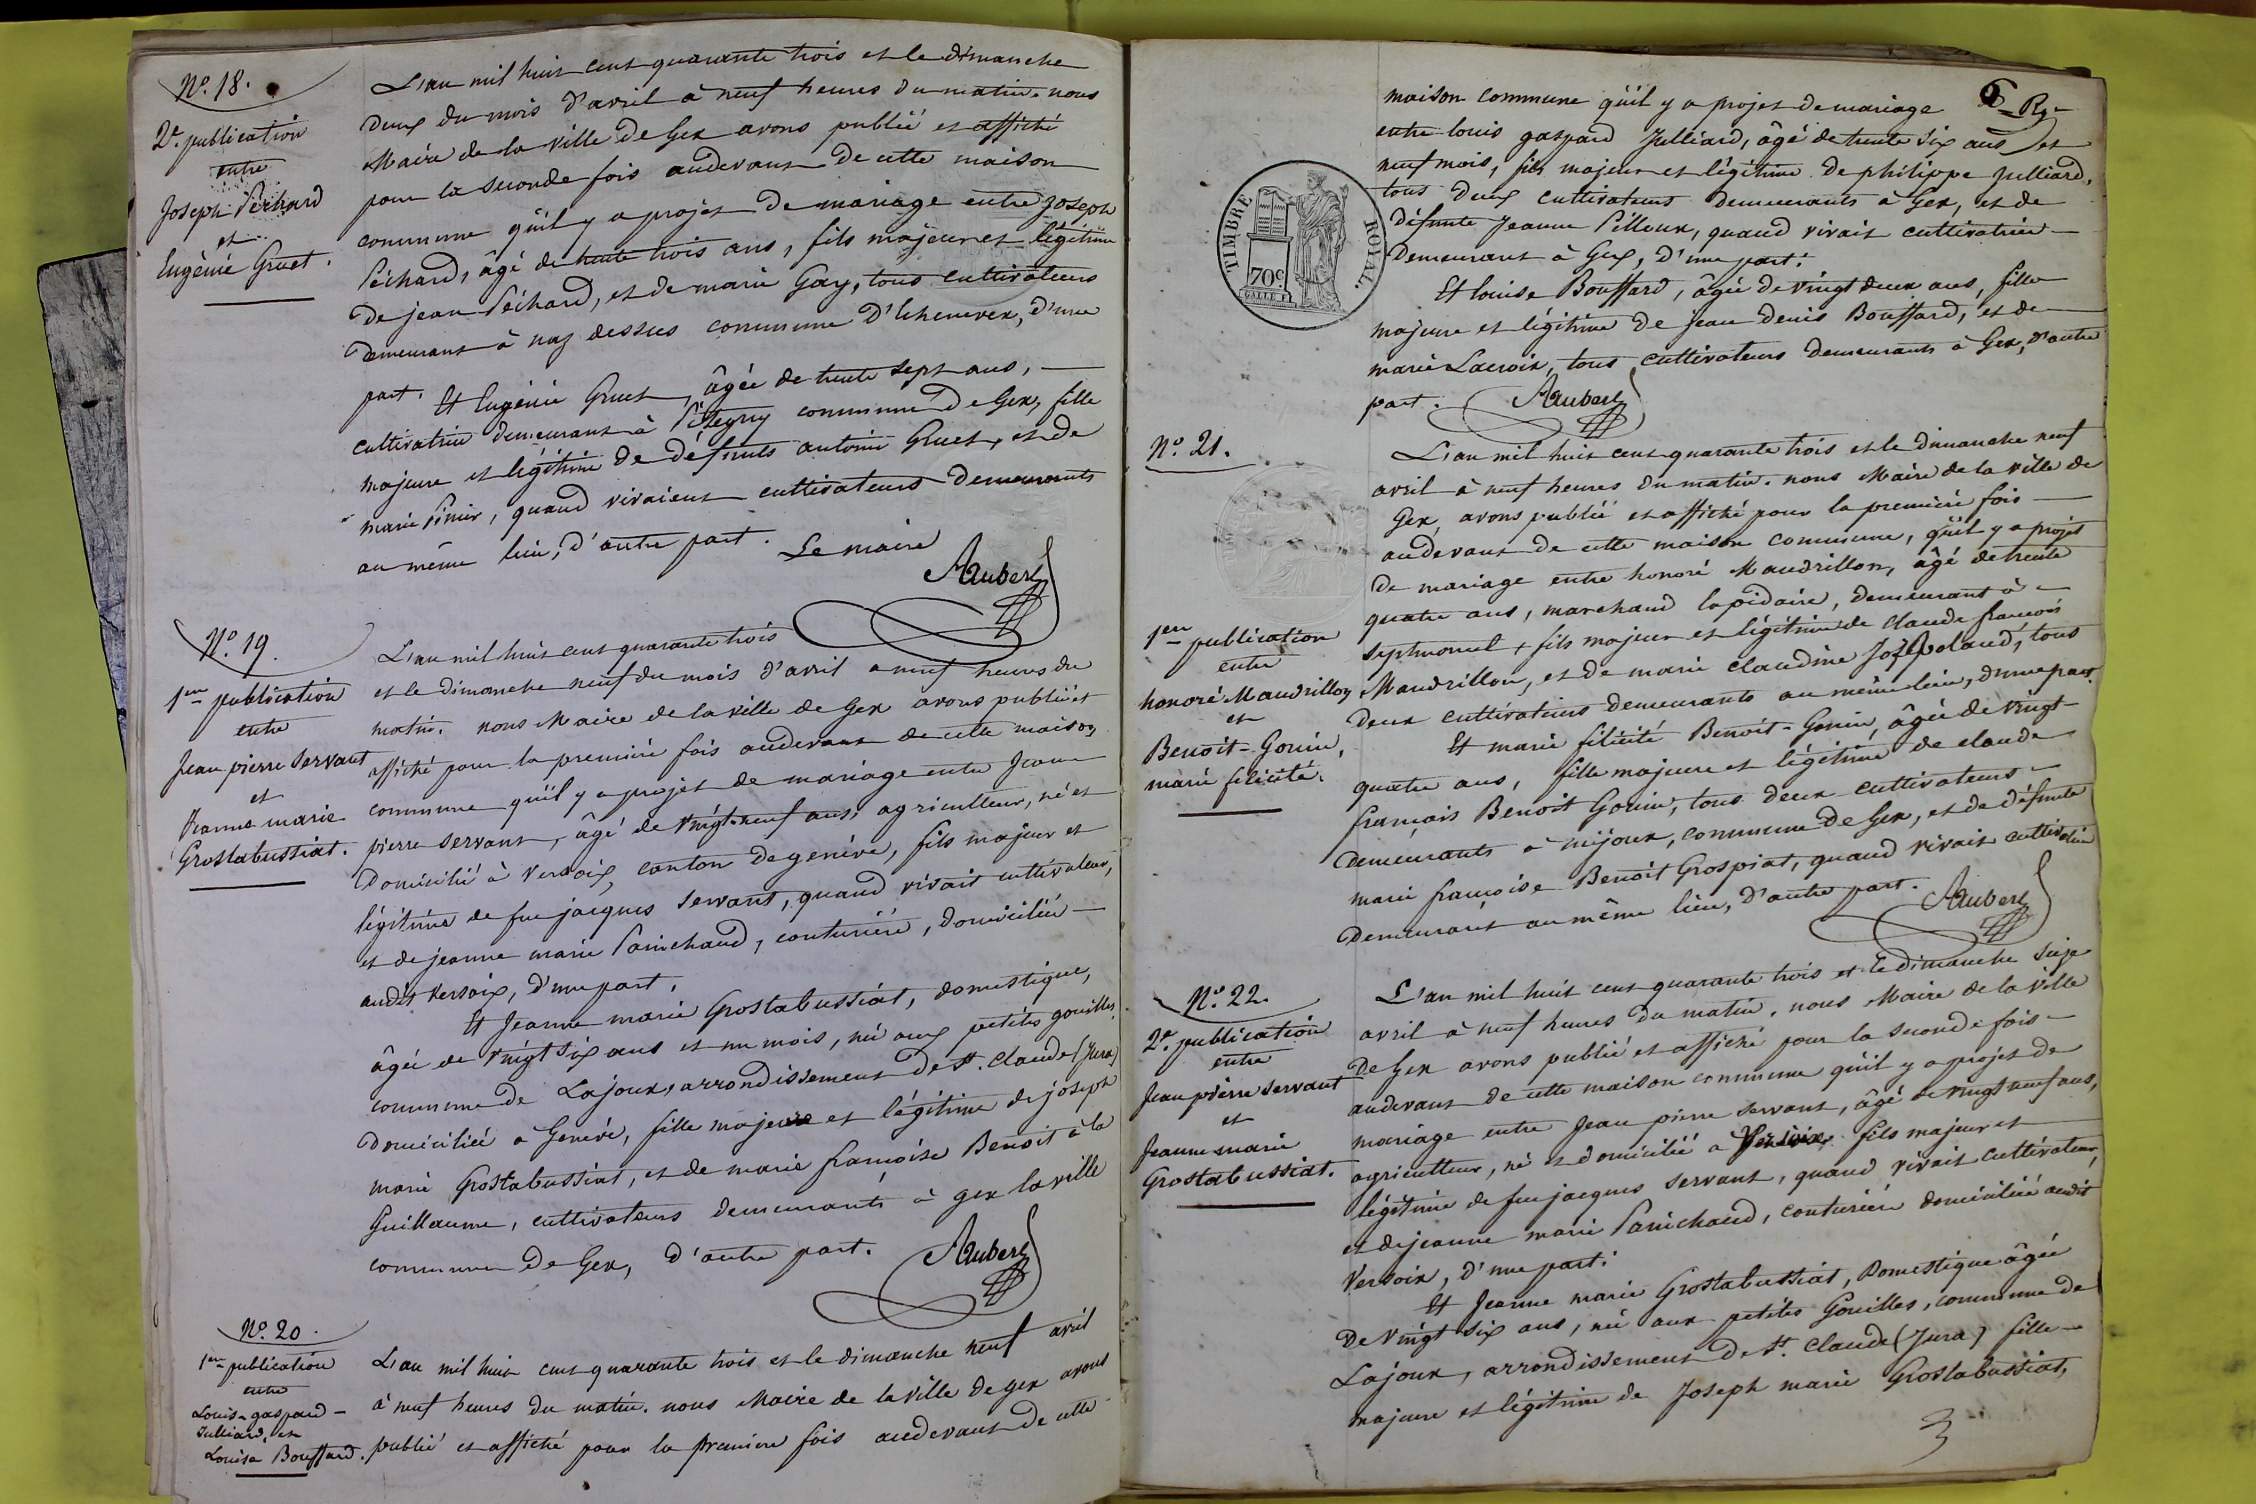 N.° 18.
2.e publication
entre
Joseph Péchard
et
Eugénie Gruet.
L'an mil huit cent quarante trois et le dimanche
deux du mois d'avril à neuf heures du matin. nous
Maire de la ville de Gex avons publié et affiché
pour la seconde fois audevant de cette maison
commune qu'il y a projet de mariage entre Joseph
Péchard, âgé de trente trois ans, fils majeur et légitime
de jean Péchard, et de marie Gay, tous cultivateurs
demeurant à naz dessus commune d'Echenevex, d'une
part. Et Eugénie Gruet, âgée de trente sept ans,
cultivatrice demeurant à Pitegny commune de Gex, fille
majeure et légitime de défunts antoine Gruet, et de
marie , quand vivaient cultivateurs demeurants
au même lieu, d'autre part. Le maire
Aubert
N.° 19.
1ere publication
entre
Jean pierre Servant
et
Jeanne marie
Grostabussiat.
L'an mil huit cent quarante trois
et le dimanche neuf du mois d'avril a neuf heures du
matin. nous Maire de la ville de Gex avons publié et
affiché pour la première fois audevant de cette maison
commune qu'il y a projet de mariage entre Jean
pierre servant, âgé de vingt neuf ans, agriculteur, né et
domicilié à Versoix, canton de genève, fils majeur et
légitime de feu jacques Servant, quand vivait cultivateur,
et de jeanne marie Panichaud, couturière, domiciliée
audit Versoix, d'une part,
Et Jeanne marie Grostabussiat, domestique,
âgée de vingt six ans et un mois, née aux petites gouilles,
commune de Lajoux, arrondissement de St. Claude (Jura)
domiciliée à Genève, fille majeure et légitime de joseph
marie Grostabussiat, et de marie françoise Benoit à la
Guillaume, cultivateurs demeurants à gex la ville
commune de Gex, d'autre part.
Aubert
N.° 20.
1ere publication
entre
Louis-gaspard
Julliard, et
Louise Bouffard.
L'an mil huit cent quarante trois et le dimanche neuf avril
à neuf heures du matin. nous Maire de la ville de gex avons
publié et affiché pour la première fois audevant de cette
6
maison commune qu'il y a projet de mariage
entre louis gaspard Julliard, âgé de trente six ans et
neuf mois, fils majeur et légitime de philippe julliard,
tous deux cultivateurs demeurants à Gex, et de
défunte Jeanne Pilloux, quand vivait cultivatrice
demeurant à Gex, d'une part.
Et louise Bouffard, âgée de vingt deux ans, fille
majeure et légitime de jean denis Bouffard, et de
marie Lacroix, tous cultivateurs demeurants à Gex, d'autre
part.
Aubert
TIMBRE ROYAL.
70c
N.° 21.
1ere publication
entre
honoré Maudrillon
et
Benoit-Gonin,
marie félicité.
L'an mil huit cent quarante trois et le dimanche neuf
avril à neuf heures du matin. nous Maire de la ville de
Gex, avons publié et affiché pour la première fois
audevant de cette maison commune, qu'il y a projet
de mariage entre honoré Maudrillon, âgé de trente
quatre ans, marchand lapidaire, demeurant à
Septmoncel, fils majeur et légitime de claude françois
Maudrillon, et de marie claudine , tous
deux cultivateurs demeurants au même lieu, d'une part
Et marie félicité Benoit-Gonin, âgée de vingt
quatre ans, fille majeure et légitime de claude
françois Benoit Gonin, tous deux cultivateurs
demeurants à mijoux, commune de Gex, et de défunte
marie françoise Benoit Grospiat, quand vivait cultivatrice
demeurant au même lieu, d'autre part.
Aubert
N.° 22.
2.e publication
entre
Jean pierre Servant
et
Jeanne marie
Grostabussiat.
L'an mil huit cent quarante trois et le dimanche seize
avril à neuf heures du matin, nous Maire de la ville
de Gex avons publié et affiché pour la seconde fois
audevant de cette maison commune qu'il y a projet de
mariage entre Jean pierre servant, âgé de vingt neuf ans,
agriculteur, né et domicilié à Versoix, fils majeur et
légitime de feu jacques servant, quand vivait cultivateur,
et de jeanne marie Panichaud, couturière domiciliée audit
Versoix, d'une part.
Et Jeanne marie Grostabussiat, domestique âgée
de vingt six ans, née aux petites Gouilles, commune de
Lajoux, arrondissement de St. Claude (Jura) fille
majeure et légitime de Joseph marie Grostabussiat,